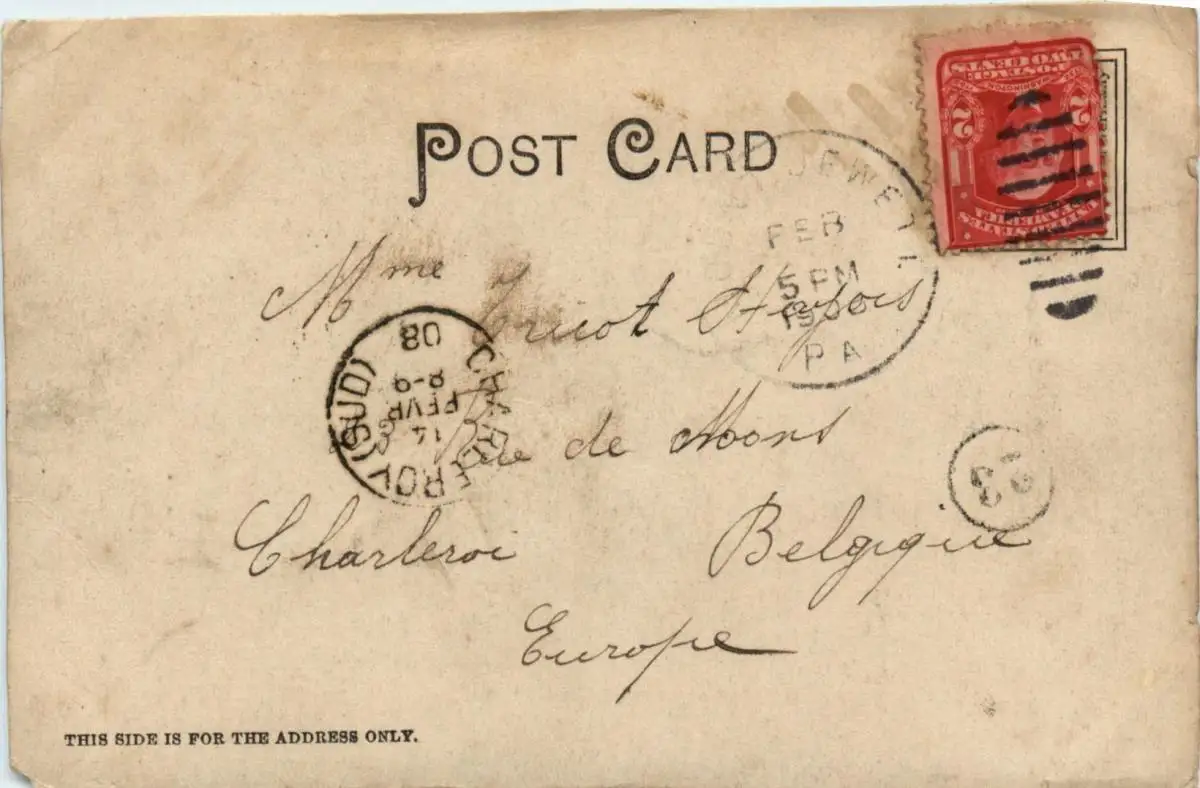 POST CARD
JEWETT
FEB
5 PM
PA
2 2
Mme Tricot
08
CHARLEROI (SUD)
8-9
FEVR
14
Rue de Mons
23
Charleroi Belgique
Europe
THIS SIDE IS FOR THE ADDRESS ONLY.